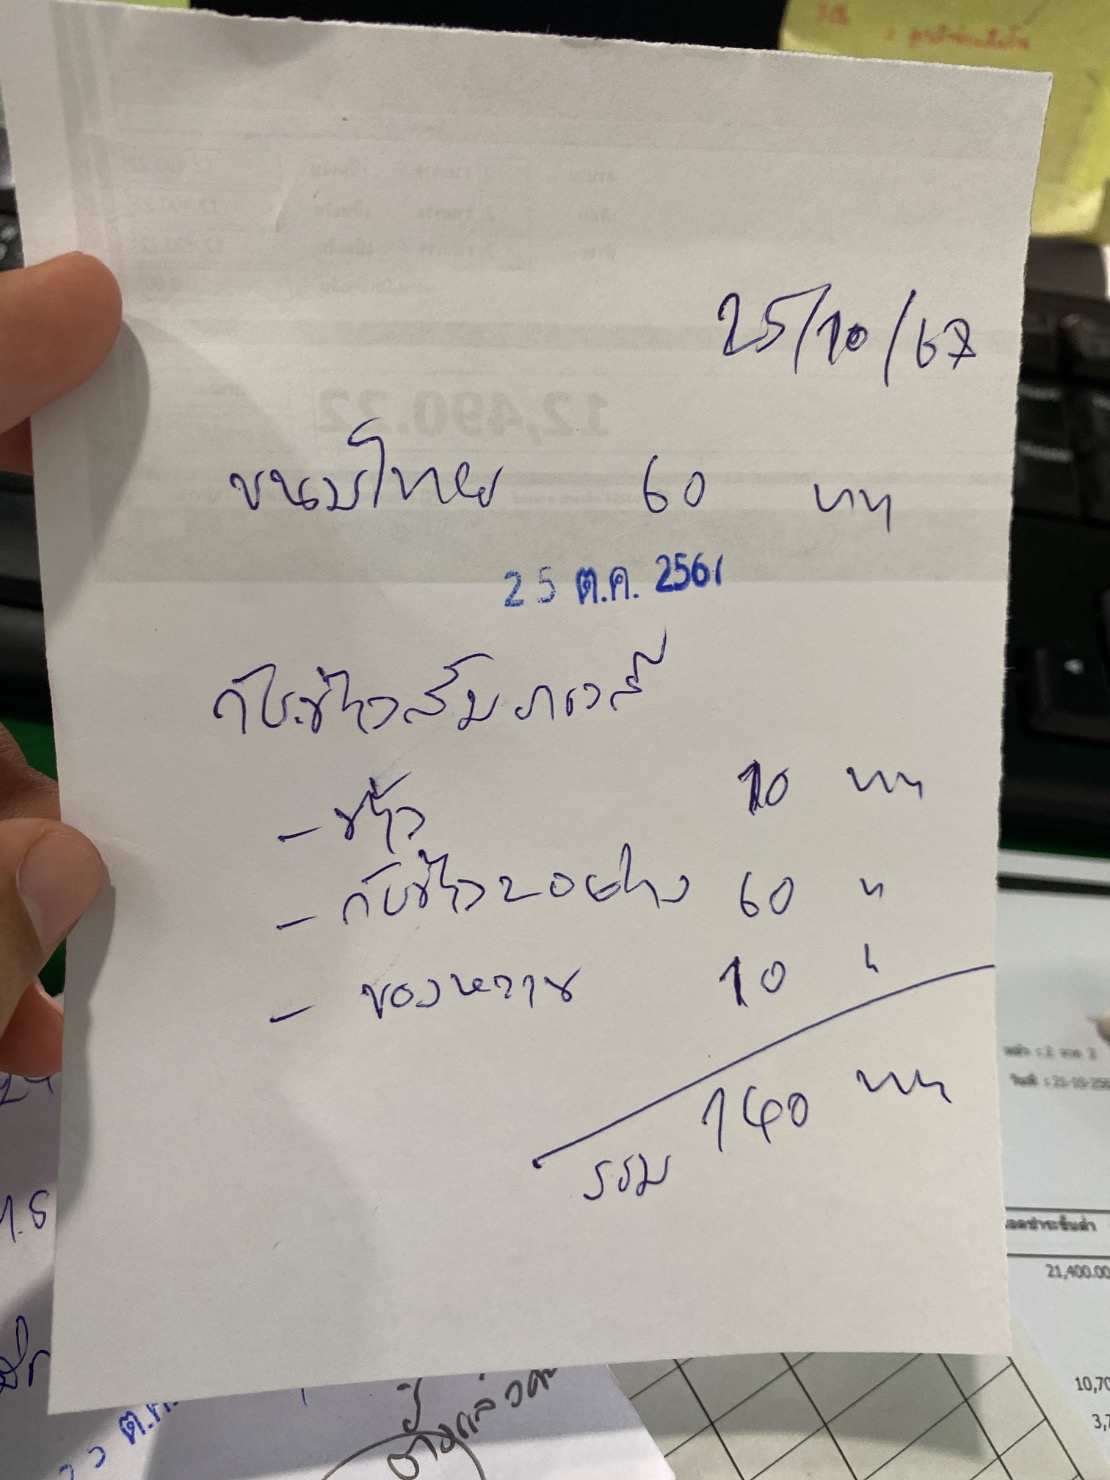 25/10/67
ขนมไทย 60 บาท
25 ต.ค. 2567
กับข้าว
- ข้าว 10 บาท
- กับข้าว 2 อย่าง 60 "
- ของหวาน 10 "
รวม 140 บาท
12,490.22
21,400.00
10,70
3,7
ต.ค.